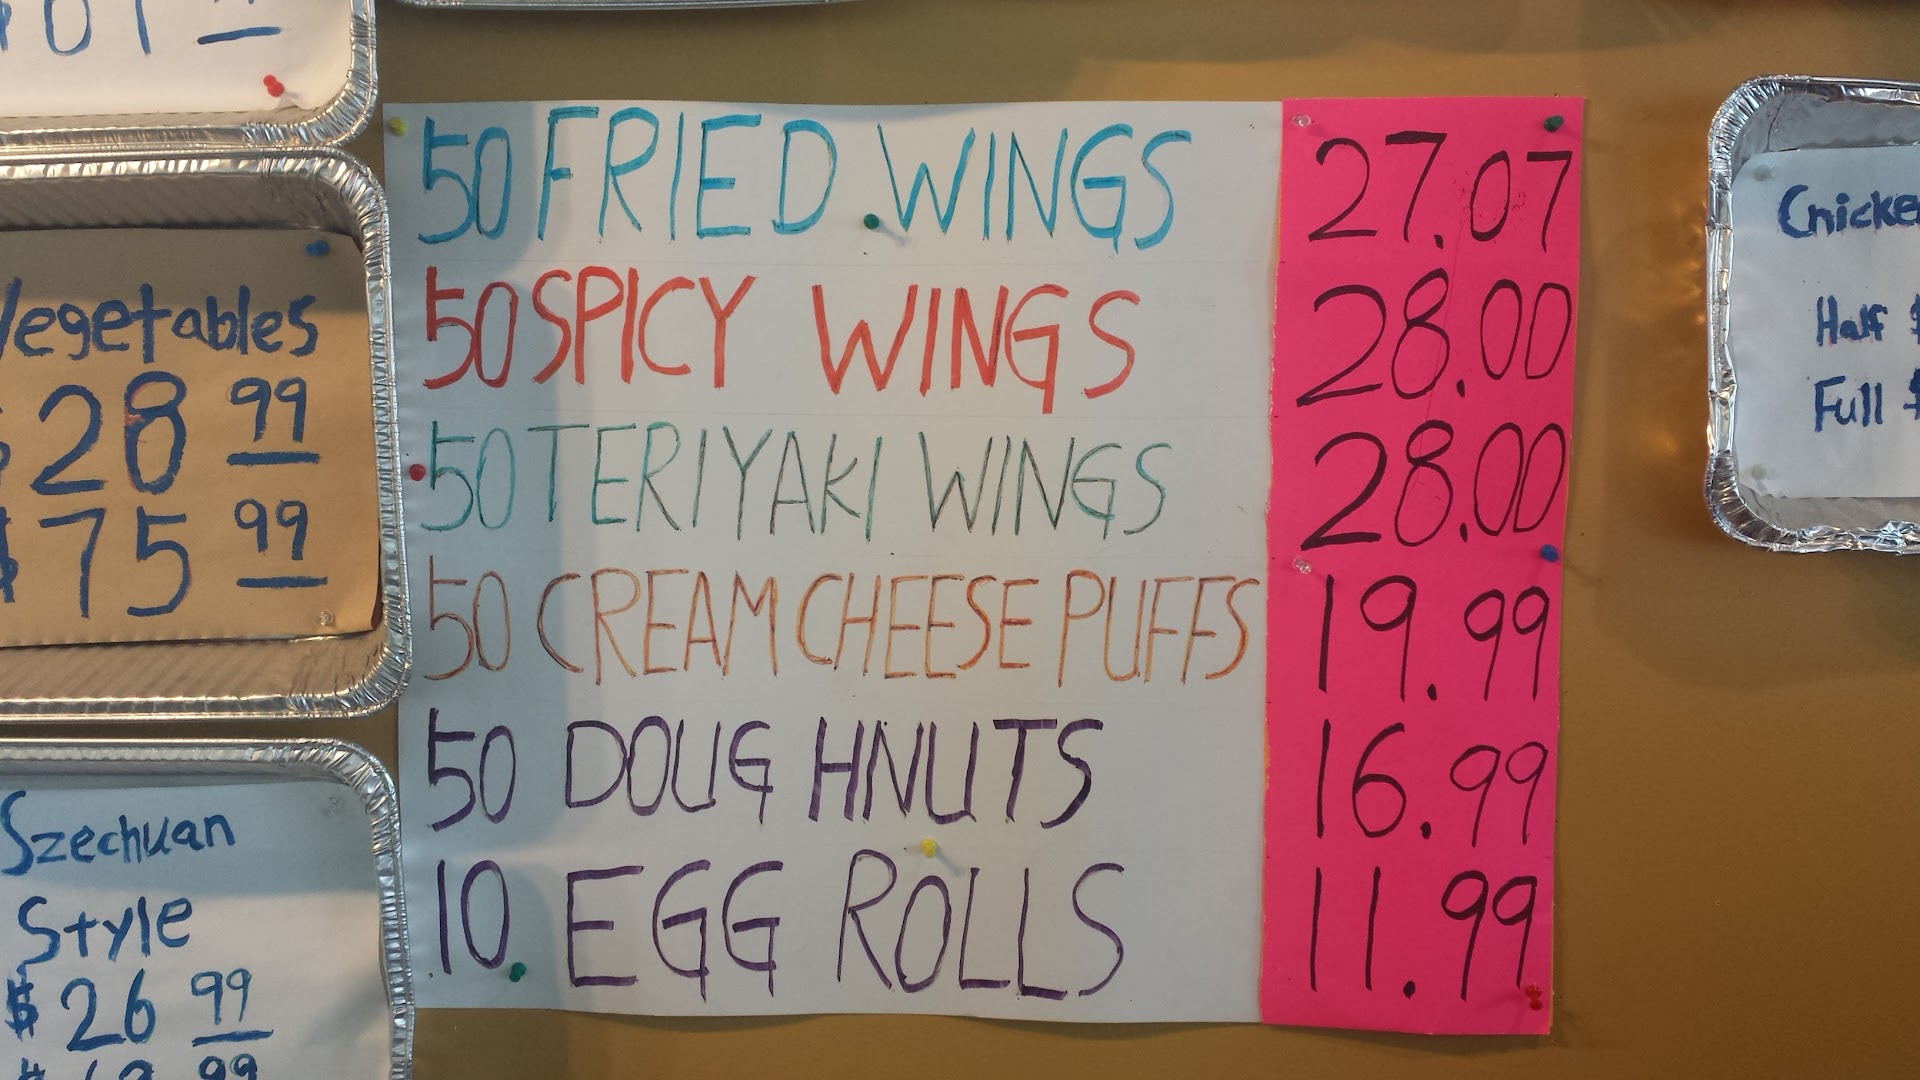 Vegetables
$28 99
$75 99
Szechuan
Style
$26 99
99
50 FRIED WINGS 27.07
50 SPICY WINGS 28.00
50 TERIYAKI WINGS 28.00
50 CREAM CHEESE PUFFS 19.99
50 DOUGHNUTS 16.99
10 EGG ROLLS 11.99
Half $
Full $